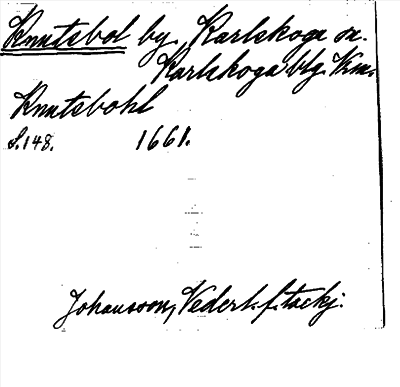 Knutsbol by, Karlskoga sn.
Karlskoga blg. Vrm.
Knutsbohl
S. 148. 1661.
Johansson, Vederl. f. tackj.